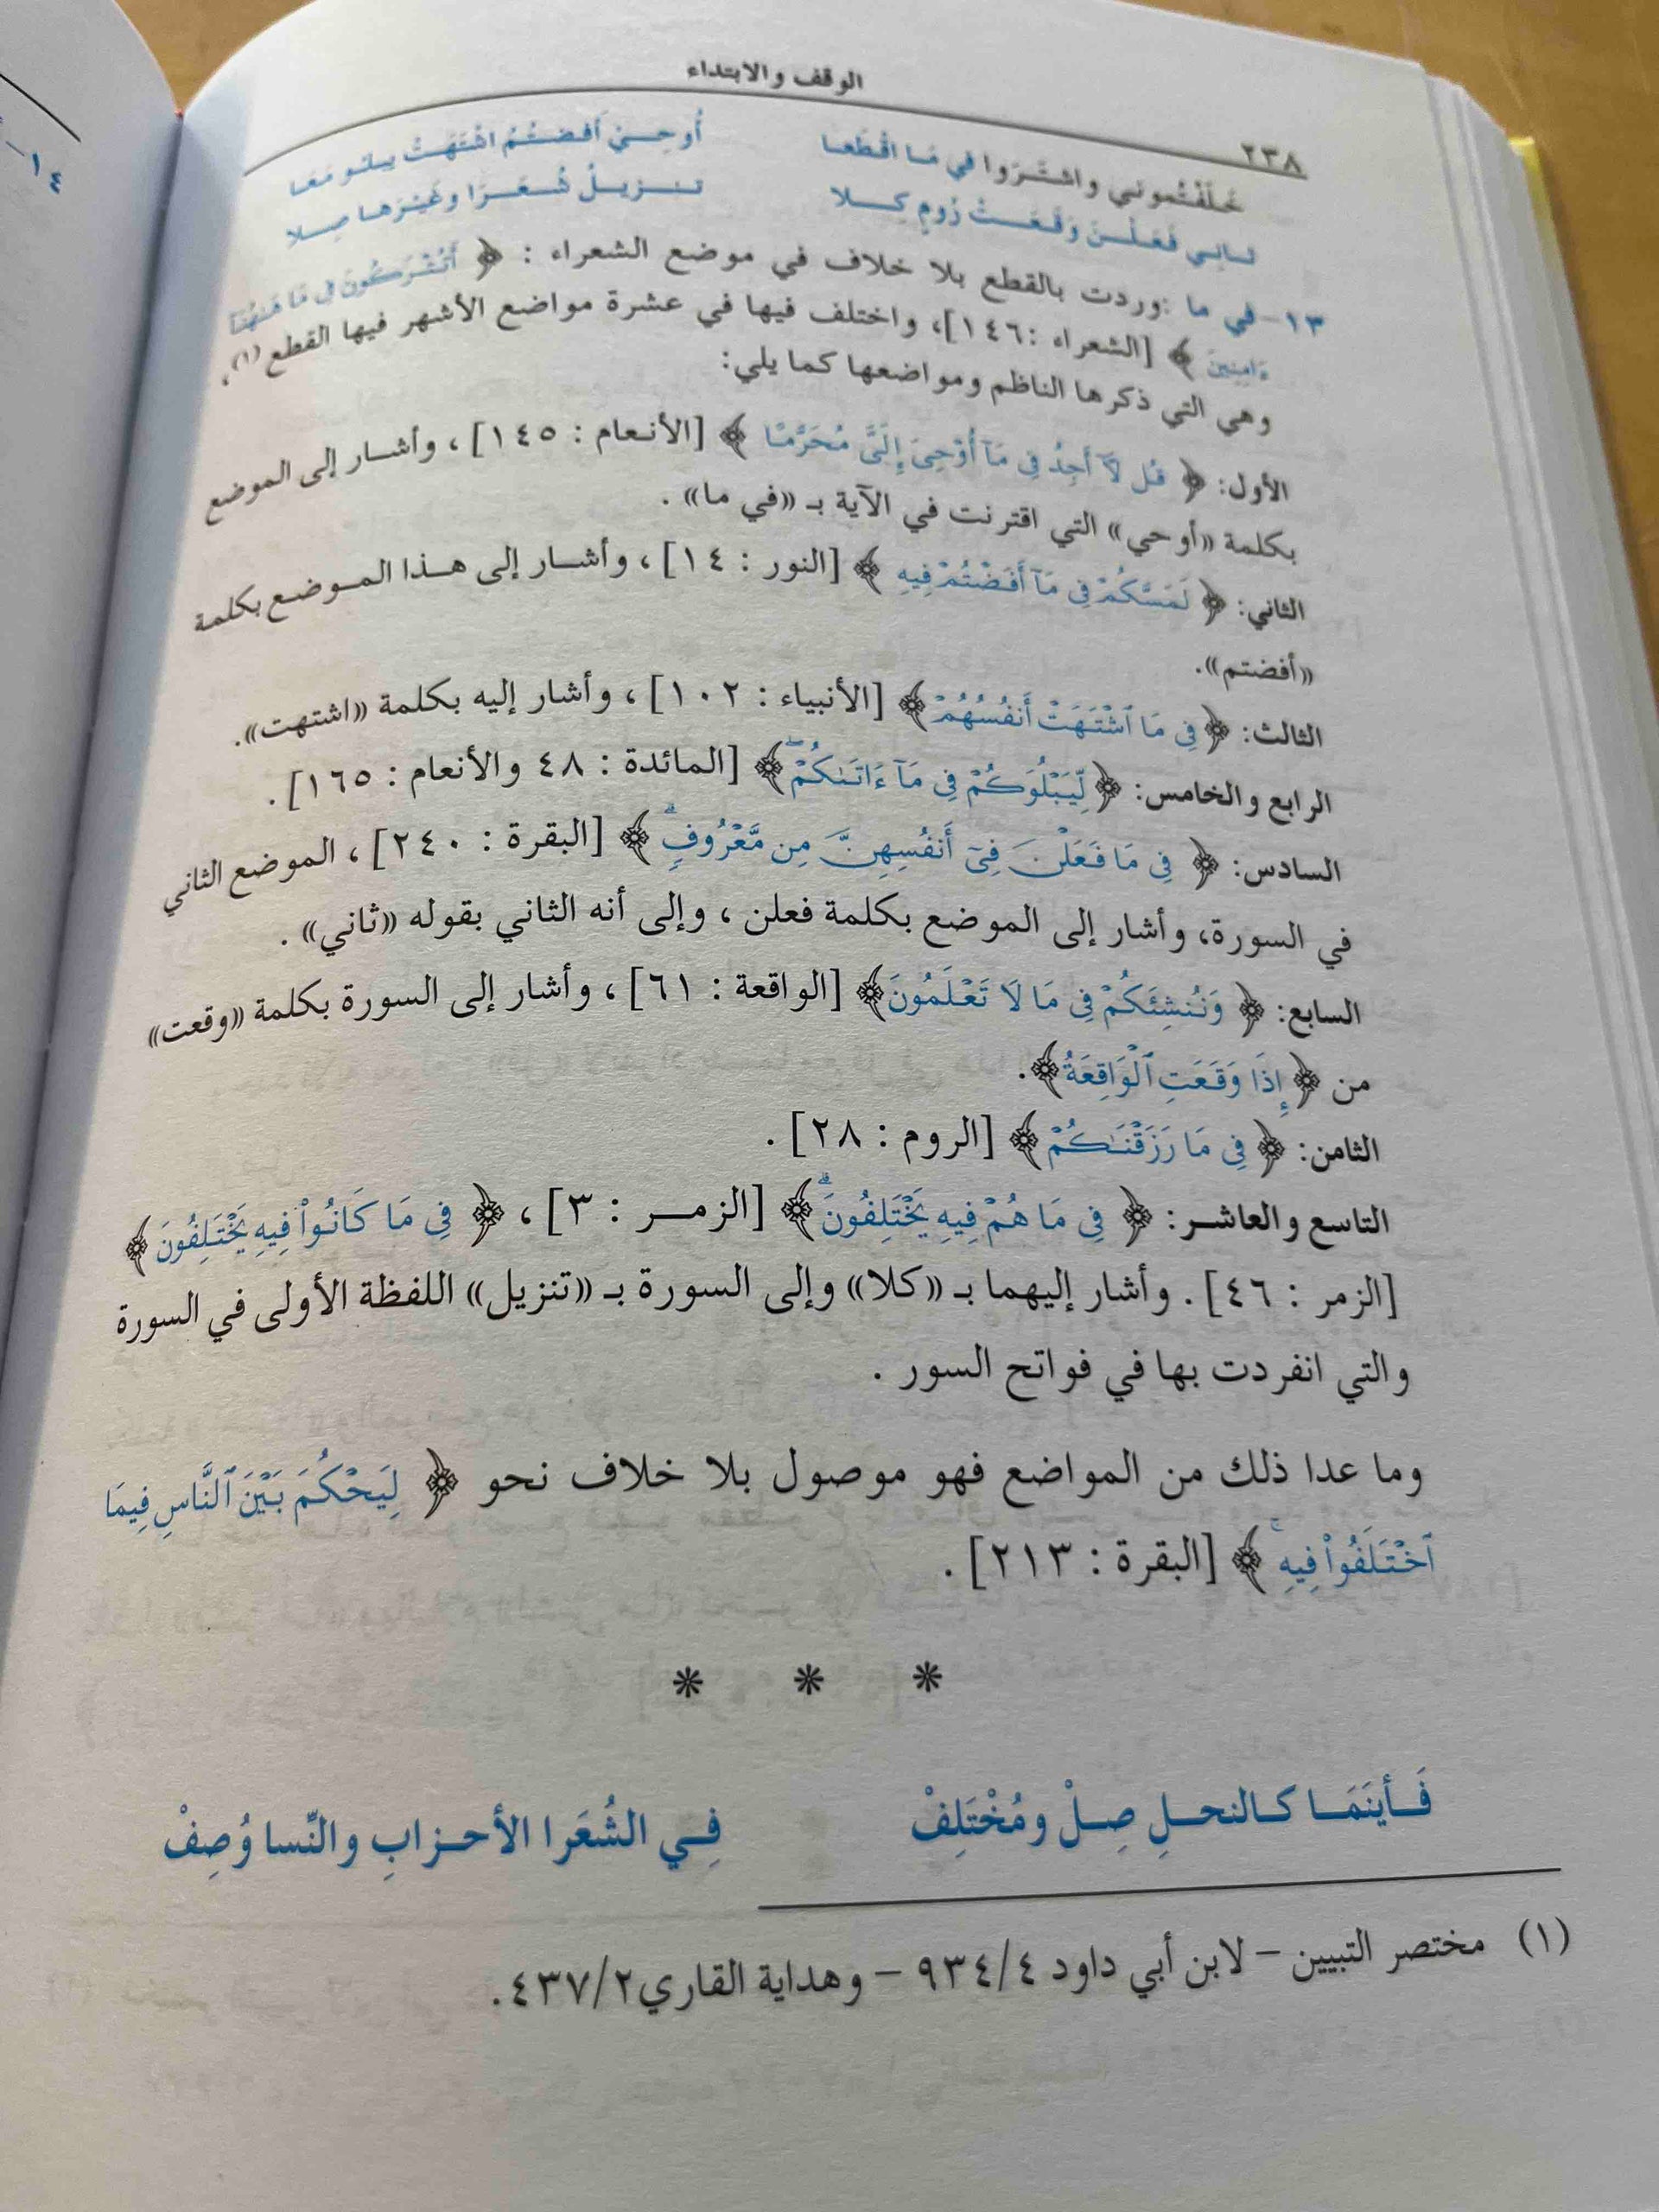 الوقف والابتداء
٢٣٨
خَلَفْتُمُوني واشتَرَوا في مَا اقْطَعا أُوحِيْ أفضتُمُ اشْتَهَتْ يبلو مَعَا
ثاني فَعَلْنَ وَقَعَتْ رُومٍ كِلا تنزيلُ شُعَرَا وغَيْرَها صِلا
١٣- في ما : وردت بالقطع بلا خلاف في موضع الشعراء : ﴿ أَتُتْرَكُونَ فِي مَا هَٰهُنَآ
ءَامِنِينَ ﴾ [الشعراء : ١٤٦]، واختلف فيها في عشرة مواضع الأشهر فيها القطع (١)،
وهي التي ذكرها الناظم ومواضعها كما يلي:
الأول: ﴿ قُل لَّآ أَجِدُ فِي مَآ أُوحِيَ إِلَيَّ مُحَرَّمًا ﴾ [الأنعام : ١٤٥] ، وأشار إلى الموضع
بكلمة «أوحي» التي اقترنت في الآية بـ «في ما» .
الثاني: ﴿ لَمَسَّكُمْ فِي مَآ أَفَضْتُمْ فِيهِ ﴾ [النور : ١٤] ، وأشار إلى هذا الموضع بكلمة
«أفضتم».
الثالث: ﴿ فِي مَا ٱشْتَهَتْ أَنفُسُهُمْ ﴾ [الأنبياء : ١٠٢] ، وأشار إليه بكلمة «اشتهت».
الرابع والخامس: ﴿ لِّيَبْلُوَكُمْ فِي مَآ ءَاتَىٰكُمْ ﴾ [المائدة : ٤٨ والأنعام : ١٦٥] .
السادس: ﴿ فِي مَا فَعَلْنَ فِيٓ أَنفُسِهِنَّ مِن مَّعْرُوفٍ ۗ ﴾ [البقرة : ٢٤٠] ، الموضع الثاني
في السورة، وأشار إلى الموضع بكلمة فعلن ، وإلى أنه الثاني بقوله «ثاني» .
السابع: ﴿ وَنُنشِئَكُمْ فِي مَا لَا تَعْلَمُونَ ﴾ [الواقعة : ٦١] ، وأشار إلى السورة بكلمة «وقعت»
من ﴿ إِذَا وَقَعَتِ ٱلْوَاقِعَةُ ﴾.
الثامن: ﴿ فِي مَا رَزَقْنَٰكُمْ ﴾ [الروم : ٢٨] .
التاسع والعاشر: ﴿ فِي مَا هُمْ فِيهِ يَخْتَلِفُونَ ۗ ﴾ [الزمر : ٣] ، ﴿ فِي مَا كَانُوا۟ فِيهِ يَخْتَلِفُونَ ﴾
[الزمر : ٤٦] . وأشار إليهما بـ «كلا» وإلى السورة بـ «تنزيل» اللفظة الأولى في السورة
والتي انفردت بها في فواتح السور .
وما عدا ذلك من المواضع فهو موصول بلا خلاف نحو ﴿ لِيَحْكُمَ بَيْنَ ٱلنَّاسِ فِيمَا
ٱخْتَلَفُوا۟ فِيهِ ۚ ﴾ [البقرة : ٢١٣] .
* * *
فَأينَمَا كالنحلِ صِلْ ومُخْتَلِفْ فِي الشُعَرا الأحزابِ والنِّسا وُصِفْ
(١) مختصر التبيين - لابن أبي داود ٩٣٤/٤ - وهداية القاري ٤٣٧/٢.
١٤-